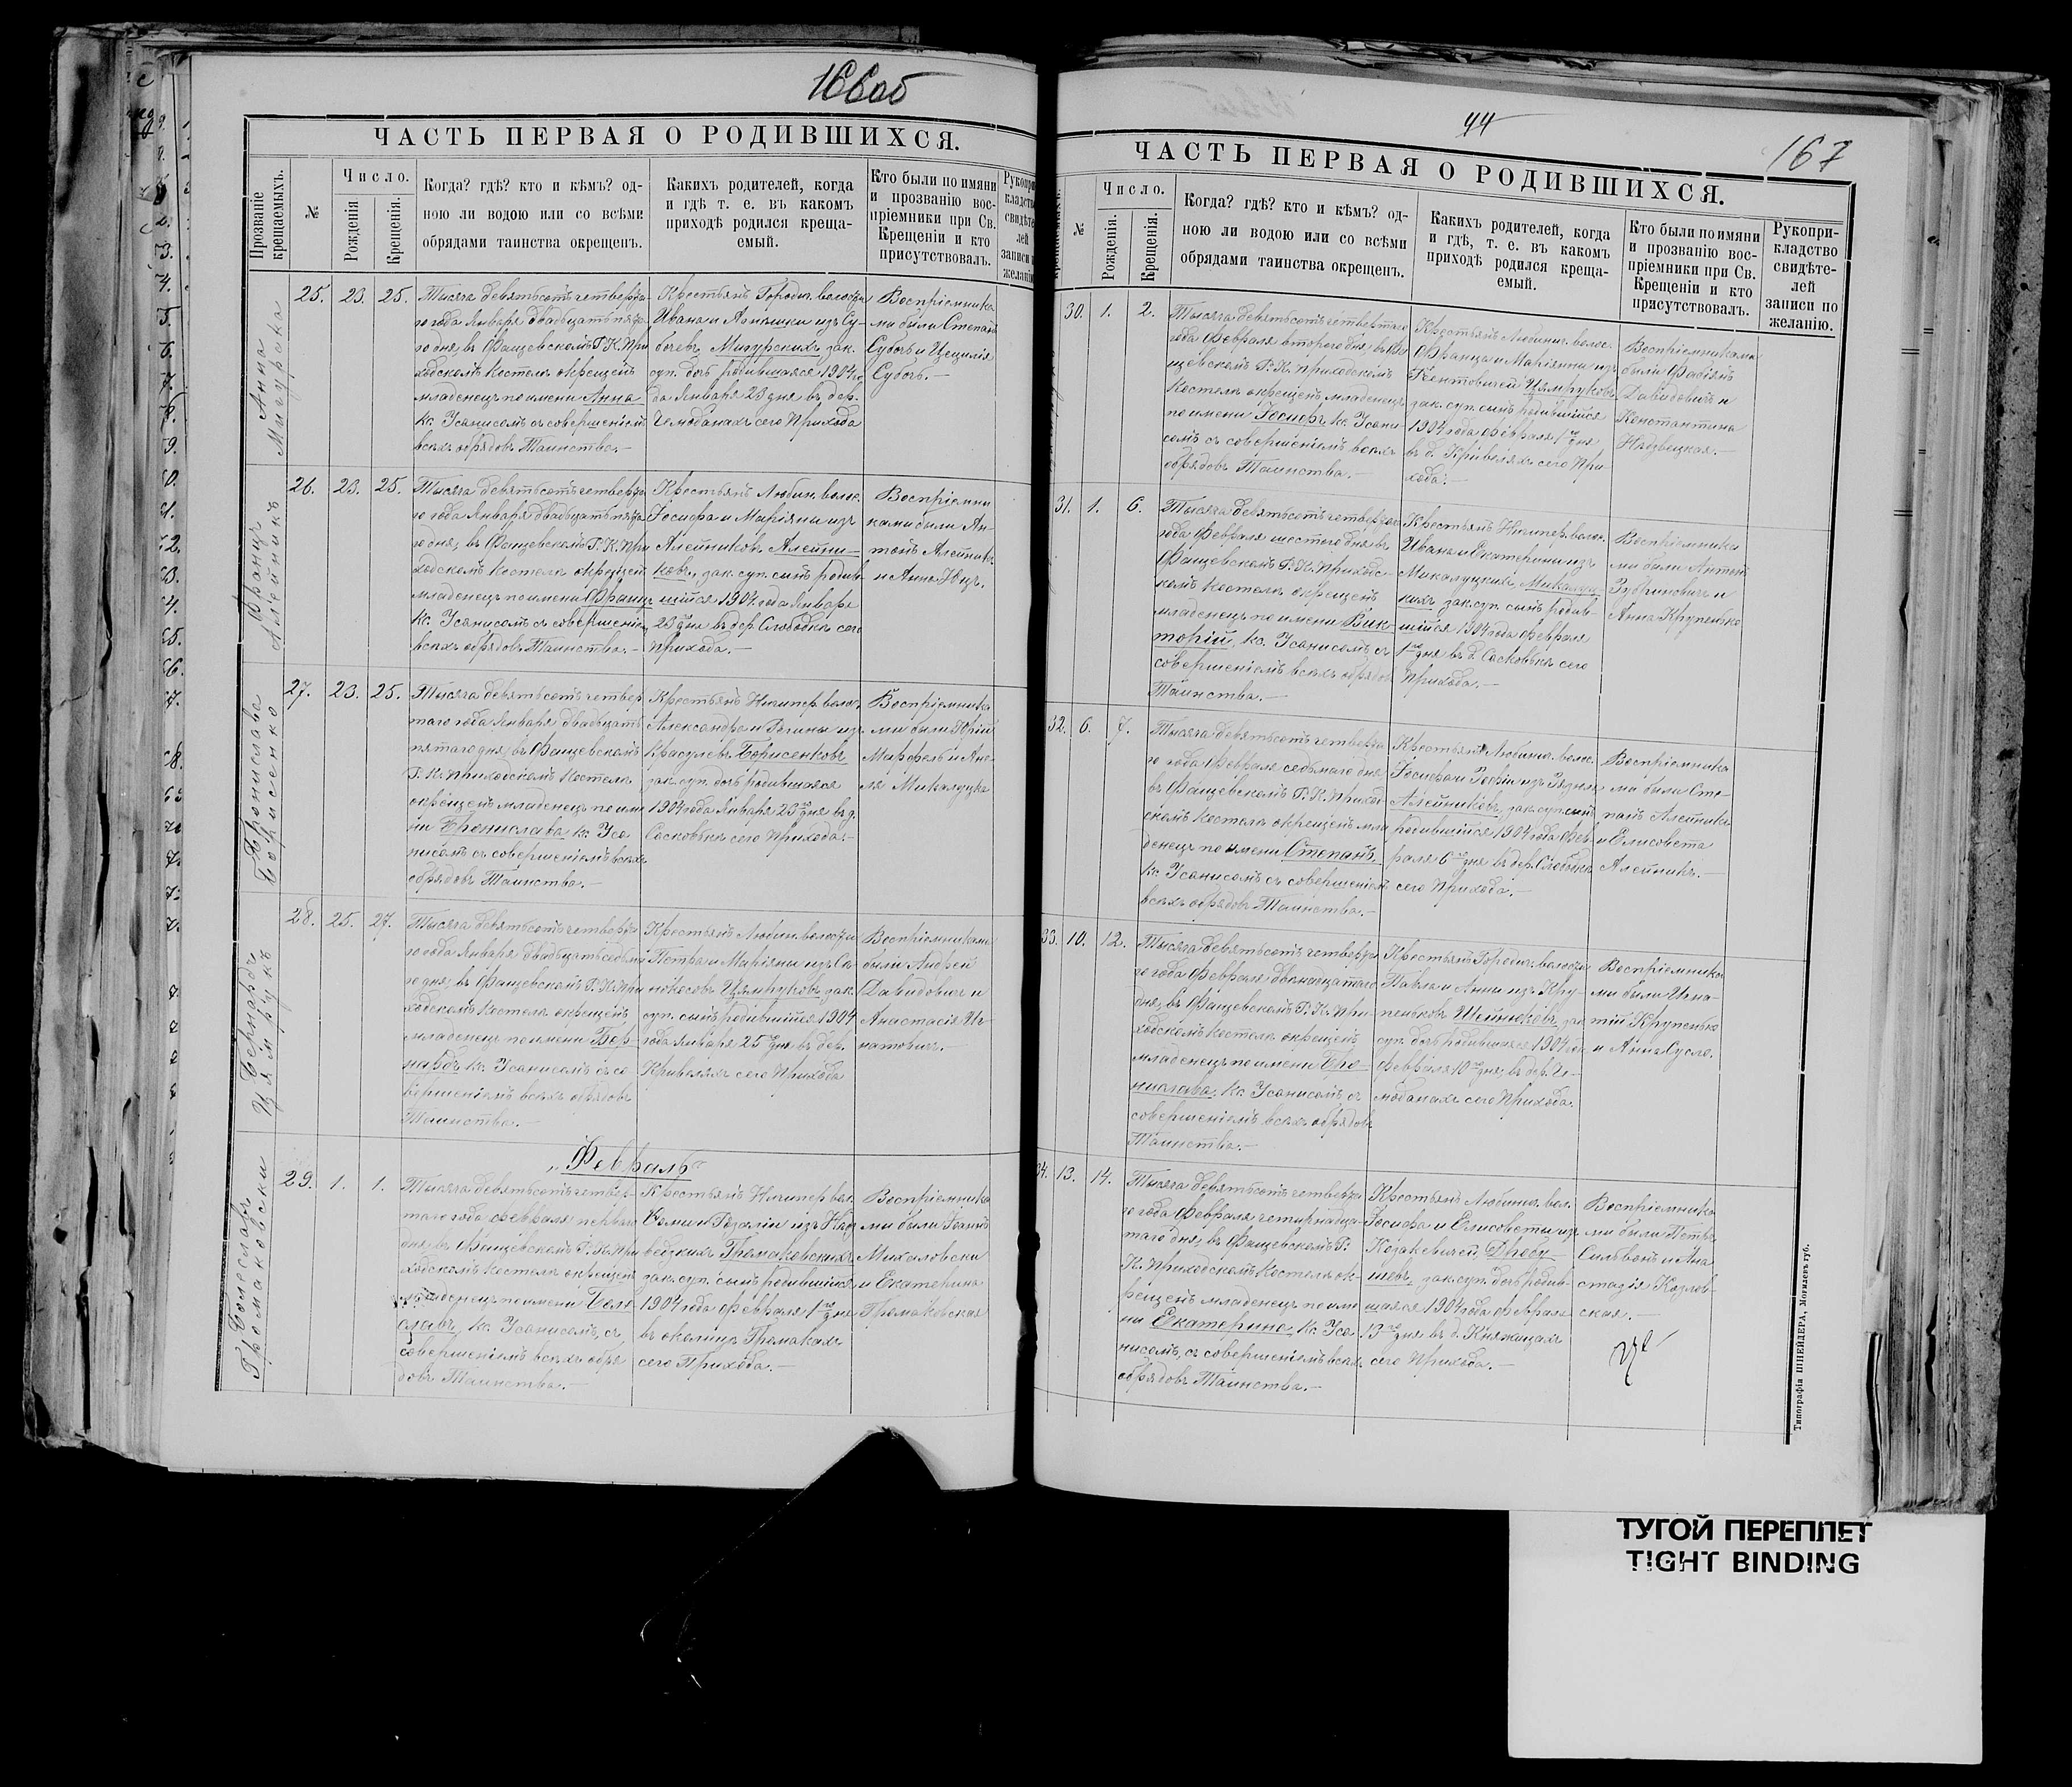 166об
ЧАСТЬ ПЕРВАЯ О РОДИВШИХСЯ.
Прозваніе крещаемыхъ.
№
Число.
Рожденія
Крещенія.
Когда? гдѣ? кто и кѣмъ? од-
ною ли водою или со всѣми
обрядами таинства окрещенъ.
Какихъ родителей, когда
и гдѣ т. е. въ какомъ
приходѣ родился креща-
емый.
Кто были по имяни
и прозванію вос-
пріемники при Св.
Крещеніи и кто
присутствовалъ.
Анна
Мигурска
25. 23. 25.
Тысяча девятьсотъ четверта-
го года Января двадцать пята-
го дня, въ Фащевскомъ Р. К. При
ходскомъ костелѣ окрещенъ
младенецъ по имени Анна
кс. Усанисомъ съ совершеніемъ
всѣхъ обрядовъ Таинства.—
Крестьянъ Городич. волости
Ивана и из Су-
бочевъ, Мигурскихъ зак.
суп. дочь родившаяся 1904 го
да Января 23 дня въ дер.
Чемоданахъ сего Прихода
Воспріемника
ми были Степанъ
Субочь и Цецилія
Субочь.—
Францъ
Алейникъ
26. 23. 25.
Тысяча девятьсотъ четверта
го года Января двадцать пята
го дня, въ Фащевскомъ Р. К. При
ходскомъ костелѣ окрещенъ
младенецъ по имени Францъ
кс. Усанисомъ съ совершеніемъ
всѣхъ обрядовъ Таинства.—
Крестьянъ Любин. волос.
Іосифа и Маріяны изъ
Алейниковъ Алейни-
ковъ, зак. суп. сынъ родив-
шійся 1904 года Января
23 дня въ дер. Слободкѣ сего
Прихода.—
Воспріемни
ками были Ан-
тонъ Алейникъ
и Анна
Бронислава
Борисенко
27. 23. 25.
Тысяча девятьсотъ четвер
таго года Января двадцать
пятаго дня, въ Фащевскомъ
Р. К. Приходскомъ костелѣ
окрещенъ младенецъ по име
ни Бронислава кс. Уса
нисомъ съ совершеніемъ всѣхъ
обрядовъ Таинства.—
Крестьянъ Нигипер. волос.
Александра и Регины изъ
Красулевъ Борисенковъ
зак. суп. дочь родившаяся
1904 года Января 23го дня въ д.
Сасковкѣ сего Прихода.—
Воспріемника
ми были Юрій
и Ане-
ля Микалуцка
Бернардъ
Цямрукъ
28. 25. 27.
Тысяча девятьсотъ четверта
го года Января двадцать седьма
го дня, въ Фащевскомъ Р. К. При
ходскомъ костелѣ окрещенъ
младенецъ по имени Бер-
нардъ кс. Усанисомъ съ со
вершеніемъ всѣхъ обрядовъ
Таинства.—
Крестьянъ Любин. волости
Петра и Маріяны изъ Си
нокосовъ Цямруковъ зак.
суп. сынъ родившійся 1904
года Января 25го дня въ дер.
Кривеляхъ сего Прихода
Воспріемниками
были Андрей
Давидовичъ и
Анастасія Иг-
натовичъ.—
„Февраль“
Болеславъ
Громаковски
29. 1. 1.
Тысяча девятьсотъ четвер-
таго года февраля перваго
дня, въ Фащевскомъ Р. К. При
ходскомъ костелѣ окрещенъ
младенецъ по имени Боле
славъ, кс. Усанисомъ, съ
совершеніемъ всѣхъ обря
довъ Таинства.—
Крестьянъ Нигипер. вол.
Ѳомы и Розаліи изъ Над
ведзкихъ Громаковскихъ
зак. суп. сынъ родившійся
1904 года февраля 1го дня
въ околицѣ Громакахъ
сего Прихода.—
Воспріемника
ми были Іоаннъ
Михаловски
и Екатерина
Громаковская
44
167
ЧАСТЬ ПЕРВАЯ О РОДИВШИХСЯ.
№
Число.
Рожденія.
Крещенія.
Когда? гдѣ? кто и кѣмъ? од-
ною ли водою или со всѣми
обрядами таинства окрещенъ.
Какихъ родителей, когда
и гдѣ, т. е. въ какомъ
приходѣ родился креща-
емый.
Кто были по имяни
и прозванію вос-
пріемники при Св.
Крещеніи и кто
присутствовалъ.
Рукопри-
кладство
свидѣте-
лей
записи по
желанію.
30. 1. 2.
Тысяча девятьсотъ четвертаго
года Февраля второго дня, въ Фа
щевскомъ Р. К. Приходскомъ
Костелѣ окрещенъ младенецъ
по имени Іосифъ, кс. Усани
сомъ съ совершеніемъ всѣхъ
обрядовъ Таинства.—
Крестьянъ Любинич. волос.
Франца и Маріянны изъ
Цямруковъ
зак. суп. сынъ родившійся
1904 года Февраля 1го дня
въ д. Кривеляхъ сего При-
хода.—
Воспріемниками
были Фабіянъ
Давидовичъ и
Константина
Надвецкая.—
31. 1. 6.
Тысяча девятьсотъ четвертаго
года Февраля шестого дня въ
Фащевскомъ Р. К. Приходс-
комъ костелѣ окрещенъ
младенецъ по имени Вик-
торій, кс. Усанисомъ съ
совершеніемъ всѣхъ обрядовъ
Таинства.—
Крестьянъ Нигипер. волос.
Ивана и Екатерины изъ
Микалуцкихъ, Микалуц-
кихъ зак. суп. сынъ родив-
шійся 1904 года Февраля
1го дня въ д. Сасковкѣ сего
Прихода.—
Воспріемника
ми были Антонъ
и
Анна Крупенько
32. 6. 7.
Тысяча девятьсотъ четверта
го года Февраля седьмаго дня
въ Фащевскомъ Р. К. Приход-
скомъ костелѣ окрещенъ мла
денецъ по имени Степанъ,
кс. Усанисомъ съ совершеніемъ
всѣхъ обрядовъ Таинства.—
Крестьянъ Любинич. волос.
Іосифа и Зофіи изъ
Алейниковъ, зак. суп. сынъ
родившійся 1904 года Фев-
раля 6го дня въ дер. Слободкѣ
сего Прихода.—
Воспріемника
ми были Сте-
панъ Алейникъ
и Елисовета
Алейникъ.—
33. 10. 12.
Тысяча девятьсотъ четверта
го года Февраля двѣнадцатаго
дня, въ Фащевскомъ Р. К. При-
ходскомъ костелѣ окрещенъ
младенецъ по имени Бро-
нислава, кс. Усанисомъ съ
совершеніемъ всѣхъ обрядовъ
Таинства.—
Крестьянъ Городич. волости
Павла и Анны изъ Кру-
пеньковъ Шейнюковъ, зак
суп. дочь родившаяся 1904 года
Февраля 10го дня, въ дер. Че-
моданахъ сего Прихода.
Воспріемника
ми были Игна-
тій Крупенько
и Анна Сусло.
34. 13. 14.
Тысяча девятьсотъ четверта
го года Февраля четырнадца-
таго дня, въ Фащевскомъ Р.
К. Приходскомъ костелѣ ок-
рещенъ младенецъ по име
ни Екатерина, кс. Уса
нисомъ, съ совершеніемъ всѣхъ
обрядовъ Таинства.—
Крестьянъ Любинич. вол.
Іосифа и Елисоветы изъ
Козакевичей,
зак. суп. дочь родив-
шаяся 1904 года Февраля
13го дня въ д. Княжицахъ
сего Прихода.—
Воспріемника
ми были Петръ
Сильванъ и Ана
стазія Козлов-
ская.—
Типографія ШНЕЙДЕРА, Могилевъ губ.
ТУГОЙ ПЕРЕПЛЕТ
TIGHT BINDING